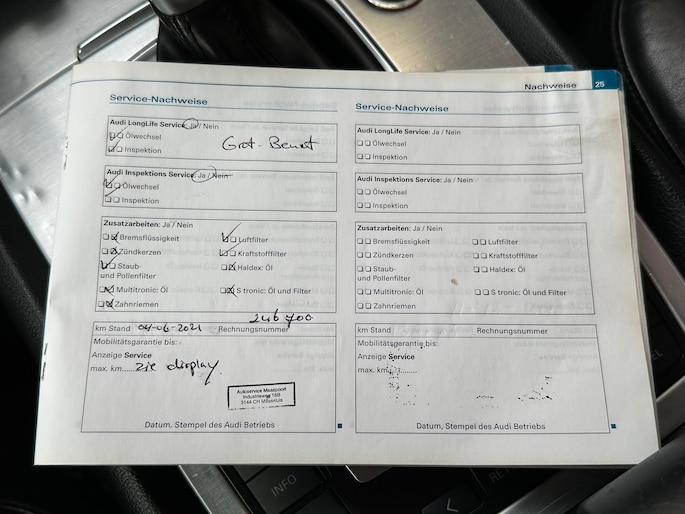 Nachweise 25
Service-Nachweise
Audi LongLife Service: Ja / Nein
Ölwechsel
Inspektion
Grot - Beurt
Audi Inspektions Service: Ja / Nein
Ölwechsel
Inspektion
Zusatzarbeiten: Ja / Nein
Bremsflüssigkeit
Luftfilter
Zündkerzen
Kraftstofffilter
Staub-
und Pollenfilter
Haldex: Öl
Multitronic: Öl
S tronic: Öl und Filter
Zahnriemen
246 700
km Stand 04-06-2021 Rechnungsnummer
Mobilitätsgarantie bis:
Anzeige Service
max. km...... zie display
Autoservice Maaspoort
Industrieweg 16B
3144 CH Maassluis
Datum, Stempel des Audi Betriebs
Service-Nachweise
Audi LongLife Service: Ja / Nein
Ölwechsel
Inspektion
Audi Inspektions Service: Ja / Nein
Ölwechsel
Inspektion
Zusatzarbeiten: Ja / Nein
Bremsflüssigkeit
Luftfilter
Zündkerzen
Kraftstofffilter
Staub-
und Pollenfilter
Haldex: Öl
Multitronic: Öl
S tronic: Öl und Filter
Zahnriemen
km Stand Rechnungsnummer
Mobilitätsgarantie bis:
Anzeige Service
max. km.........
Datum, Stempel des Audi Betriebs
INFO